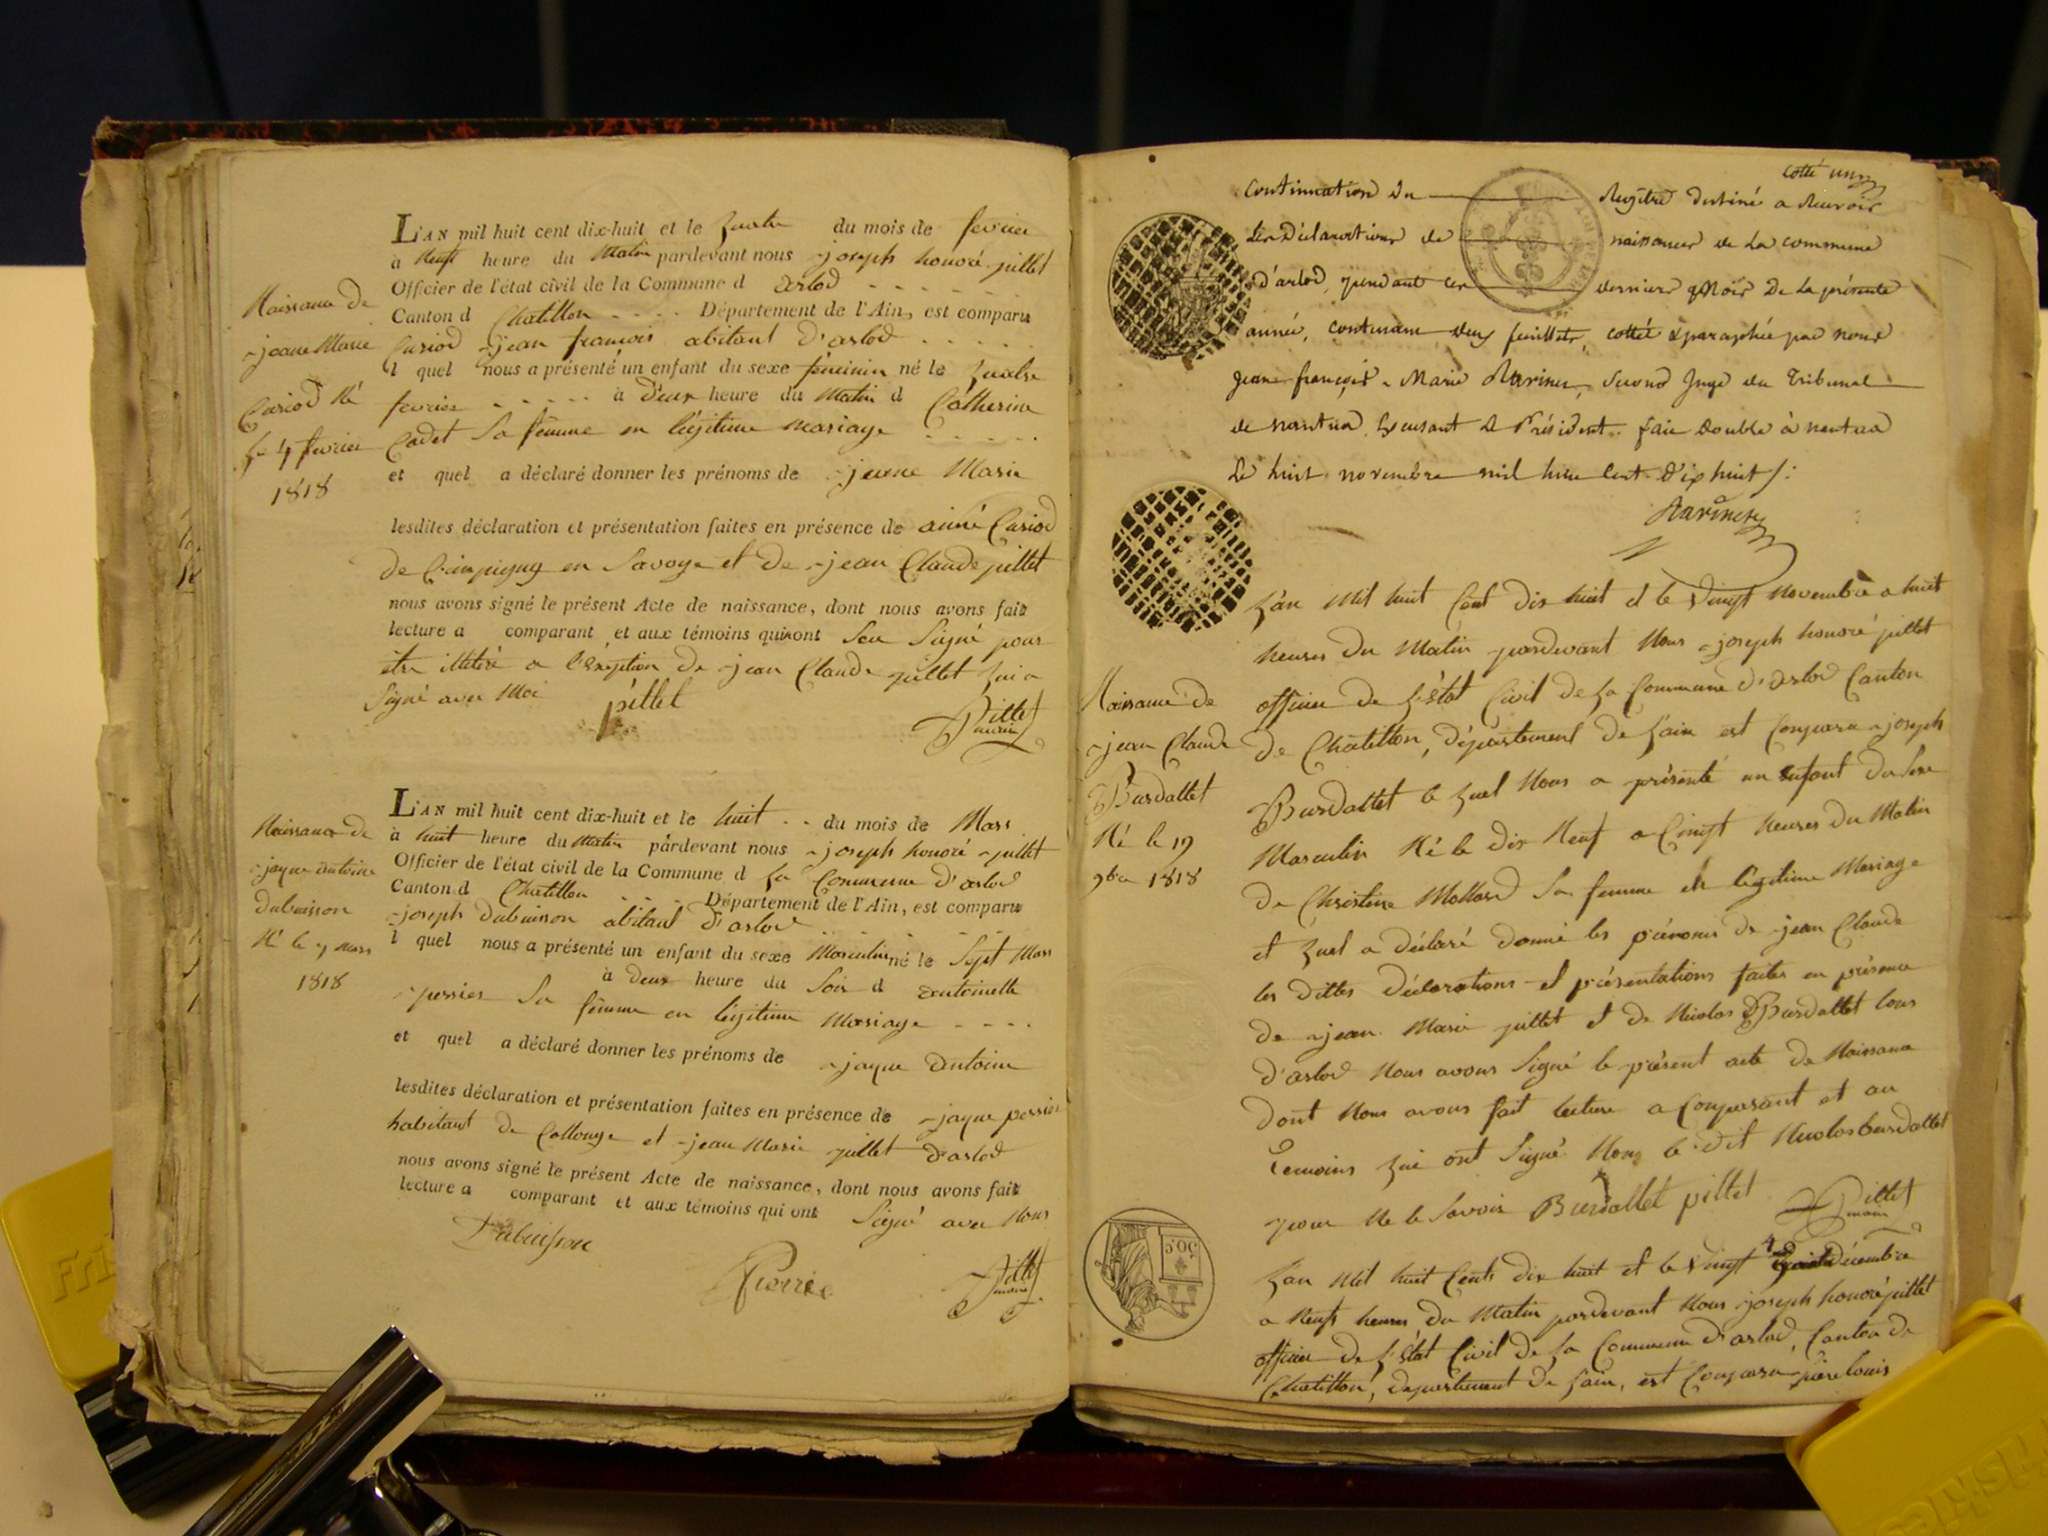 L'AN mil huit cent dix-huit et le quatre du mois de fevrier
à neuf heure du matin pardevant nous joseph honoré pillet
Officier de l'état civil de la Commune d arlod
Canton d Chatillon Département de l'Ain, est comparu
Cusiod jean francois abitant d'arlod
l quel nous a présenté un enfant du sexe féminin né le quatre
fevrier à deux heure du matin d Catherine
Cadet sa femme en légitime mariage
et quel a déclaré donner les prénoms de jeane Marie
lesdites déclaration et présentation faites en présence de aimé Cusiod
de en Savoye et de jean Claude pillet
nous avons signé le présent Acte de naissance, dont nous avons fait
lecture a comparant et aux témoins qui ont seu signé pour
être illitéré a l'éxception de jean Claude pillet qui a
signé avec Moi pillet
Pillet
maire
Naissance de
jeane Marie
Cusiod né
le 4 fevrier
1818
L'AN mil huit cent dix-huit et le huit du mois de Mars
à huit heure du matin pardevant nous joseph honoré pillet
Officier de l'état civil de la Commune d la Commune d'arlod
Canton d Chatillon Département de l'Ain, est comparu
joseph Dubuisson abitant d'arlod
l quel nous a présenté un enfant du sexe Masculin né le sept Mars
à deux heure du soir d antoinette
perrier sa femme en légitime Mariage
et quel a déclaré donner les prénoms de jaque antoine
lesdites déclaration et présentation faites en présence de jaque perrier
habitant de Collonge et jean Marie pillet d'arlod
nous avons signé le présent Acte de naissance, dont nous avons fait
lecture a comparant et aux témoins qui ont signé avec nous
Dubuisson
Pierre
Pillet
maire
Naissance de
jaque antoine
dubuisson
né le 7 mars
1818
cotté un
Continuation du Registre destiné a recevoir
les Déclarations de naissances de la commune
d'arlod, pendant les derniers mois de la présente
année, contenant deux feuillets, cottés & paraphés par nous
Jean françois Marie Ravinet, second Juge du Tribunal
de nantua, le Président. fait double à nantua
le huit novembre mil huit cent dix huit /:
Ravinet
L'an mil huit Cent dix huit et le vingt Novembre a huit
heures du Matin pardevant Nous joseph honoré pillet
officier de l'état Civil de la Commune d'arlod Canton
de Chatillon, département de l'ain est Comparu joseph
Burdallet le quel Nous a présenté un enfant du sexe
Masculin Né le dix Neuf a Cinq heures du Matin
de Christine Mollard sa femme en légitime Mariage
et quel a déclaré donné les prénoms de jean Claude
les dittes déclarations et présentations faites en présence
de jean Marie pillet et de Nicolas Burdallet tous
d'arlod Nous avons signé le présent acte de Naissance
dont Nous avons fait lecture a Comparant et au
Temoins qui ont signé Nous le dit Nicolas burdallet
pour Ne le savoir Burdallet pillet
Pillet
maire
Naissance de
jean Claude
Burdallet
Né le 19
9bre 1818
50 c.
L'an Mil huit Cent dix huit et le vingt 4 Décembre
a Neuf heures du Matin pardevant Nous joseph honoré pillet
officier de l'état Civil de la Commune d'arlod, Canton de
Chatillon, département de l'ain, est Comparu piere louis